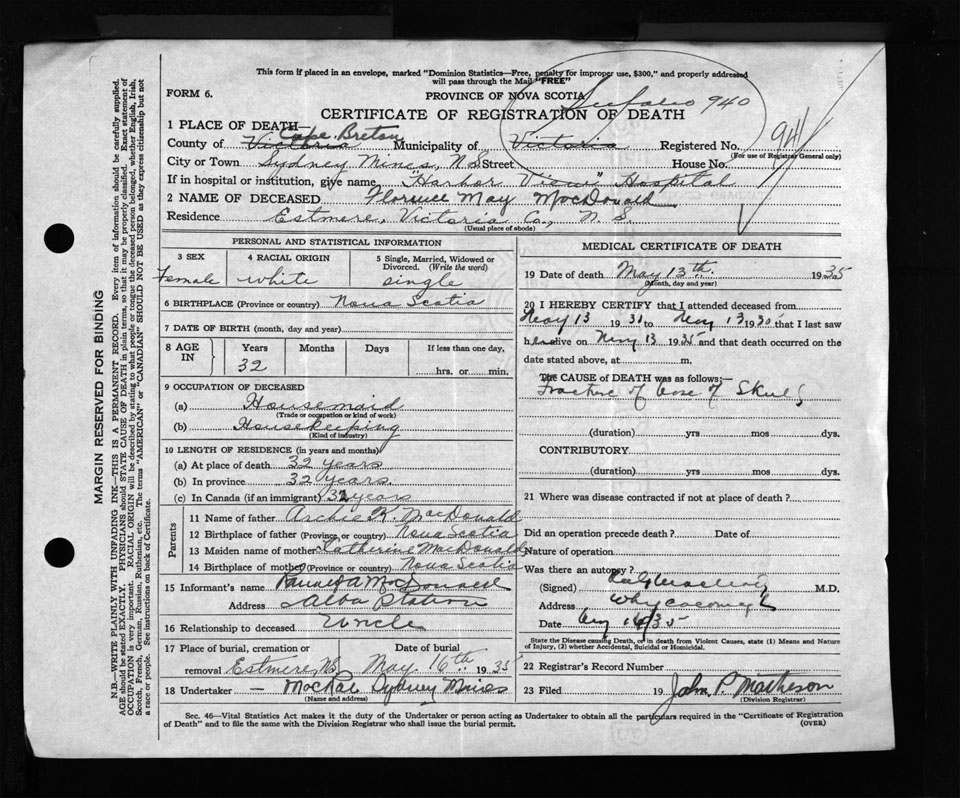 This form if placed in an envelope, marked "Dominion Statistics—Free, penalty for improper use, $300," and properly addressed
will pass through the Mail "FREE"
FORM 6.
PROVINCE OF NOVA SCOTIA
940
CERTIFICATE OF REGISTRATION OF DEATH
941
1 PLACE OF DEATH—
Cape Breton
County of Victoria Municipality of Victoria Registered No.
(For use of Registrar General only)
City or Town Sydney Mines, N.S. Street House No.
If in hospital or institution, give name "Harbor View" Hospital
2 NAME OF DECEASED Florence May MacDonald
Residence Estmere, Victoria Co., N. S.
(Usual place of abode)
PERSONAL AND STATISTICAL INFORMATION
3 SEX
Female
4 RACIAL ORIGIN
white
5 Single, Married, Widowed or
Divorced. (Write the word)
single
6 BIRTHPLACE (Province or country) Nova Scotia
7 DATE OF BIRTH (month, day and year)
8 AGE IN
Years Months Days If less than one day,
32
hrs. or min.
9 OCCUPATION OF DECEASED
(a) Housemaid
(Trade or occupation or kind of work)
(b) Housekeeping
(Kind of industry)
10 LENGTH OF RESIDENCE (in years and months)
(a) At place of death 32 years
(b) In province 32 years.
(c) In Canada (if an immigrant) 32 years
Parents
11 Name of father Archie K. MacDonald
12 Birthplace of father (Province or country) Nova Scotia
13 Maiden name of mother Catherine MacDonald
14 Birthplace of mother (Province or country) Nova Scotia
15 Informant's name MacDonald
Address Alba Station
16 Relationship to deceased Uncle
17 Place of burial, cremation or Date of burial
removal Estmere, N.S. May 16th 1935
18 Undertaker — MacRae Sydney Mines
(Name and address)
MEDICAL CERTIFICATE OF DEATH
19 Date of death May 13th. 1935
(Month, day and year)
20 I HEREBY CERTIFY that I attended deceased from
May 13 1935 to May 13 1935 that I last saw
her alive on May 13 1935 and that death occurred on the
date stated above, at m.
The CAUSE OF DEATH was as follows:—
Fracture of base of Skull
(duration) yrs mos dys.
CONTRIBUTORY
(duration) yrs mos dys.
21 Where was disease contracted if not at place of death?
Did an operation precede death? Date of
Nature of operation
Was there an autopsy?
(Signed) M.D.
Address Whycocomagh
Date 14/35
State the Disease causing Death, or in death from Violent Causes, state (1) Means and Nature
of Injury, (2) whether Accidental, Suicidal or Homicidal.
22 Registrar's Record Number
23 Filed 19 John P. Matheson
(Division Registrar)
Sec. 46—Vital Statistics Act makes it the duty of the Undertaker or person acting as Undertaker to obtain all the particulars required in the "Certificate of Registration
of Death" and to file the same with the Division Registrar who shall issue the burial permit.
(OVER)
MARGIN RESERVED FOR BINDING
N.B.—WRITE PLAINLY WITH UNFADING INK—THIS IS A PERMANENT RECORD. Every item of information should be carefully supplied.
AGE should be stated EXACTLY. PHYSICIANS should STATE CAUSE OF DEATH in plain terms, so that it may be properly classified. Exact statement of
OCCUPATION is very important. RACIAL ORIGIN will be described by stating to what people or tongue the deceased person belonged, whether English, Irish,
Scotch, French, German, Russian, Ruthenian, etc. The terms "AMERICAN" or "CANADIAN" SHOULD NOT BE USED as they express citizenship but not
a race or people. See instructions on back of Certificate.